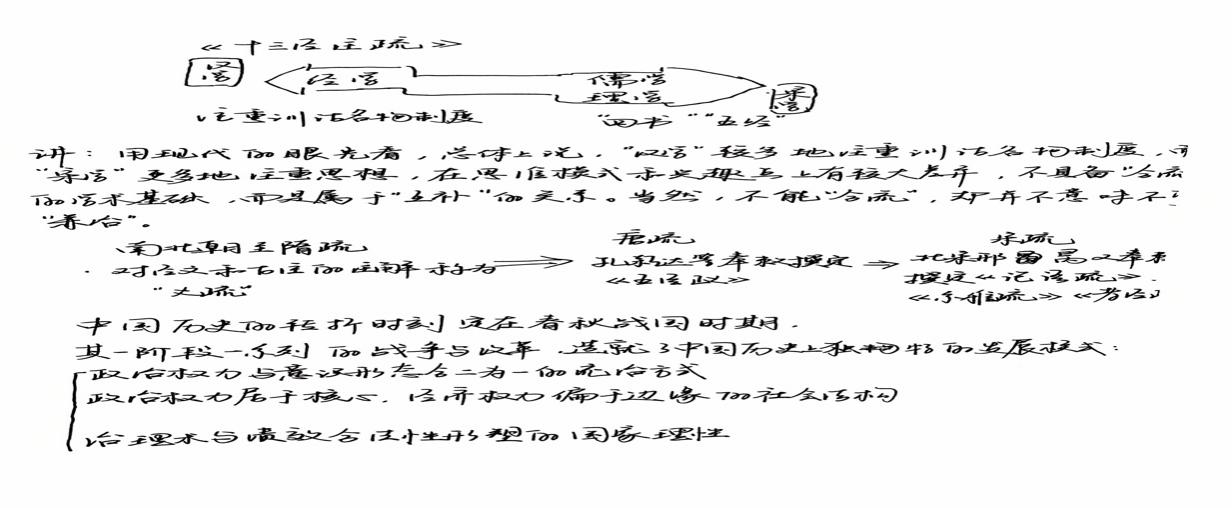 《十三经注疏》
汉学
经学 儒学
理学
宋学
注重训诂名物制度 "四书""五经"
讲：用现代的眼光看，总体上说，"汉学"较多地注重训诂名物制度，而
"宋学"更多地注重思想，在思维模式和兴趣点上有较大差异，不具备"合流
的学术基础，而是属于"互补"的关系。当然，不能"合流"，却并不意味不
"兼治"。
南北朝至隋疏 唐疏 宋疏
·对经文和古注的注解称为 孔颖达等奉敕撰定 北宋邢昺又奉
"义疏" 《五经 》 撰定
《尔雅疏》《孝经
中国历史的转折时刻定在春秋战国时期.
其一阶段一系列的战争与改革,造就了中国历史上独特的发展模式：
政治权力与意识形态合二为一的统治方式
政治权力居于核心.经济权力偏于边缘的社会结构
治理术与绩效合法性形塑的国家理性